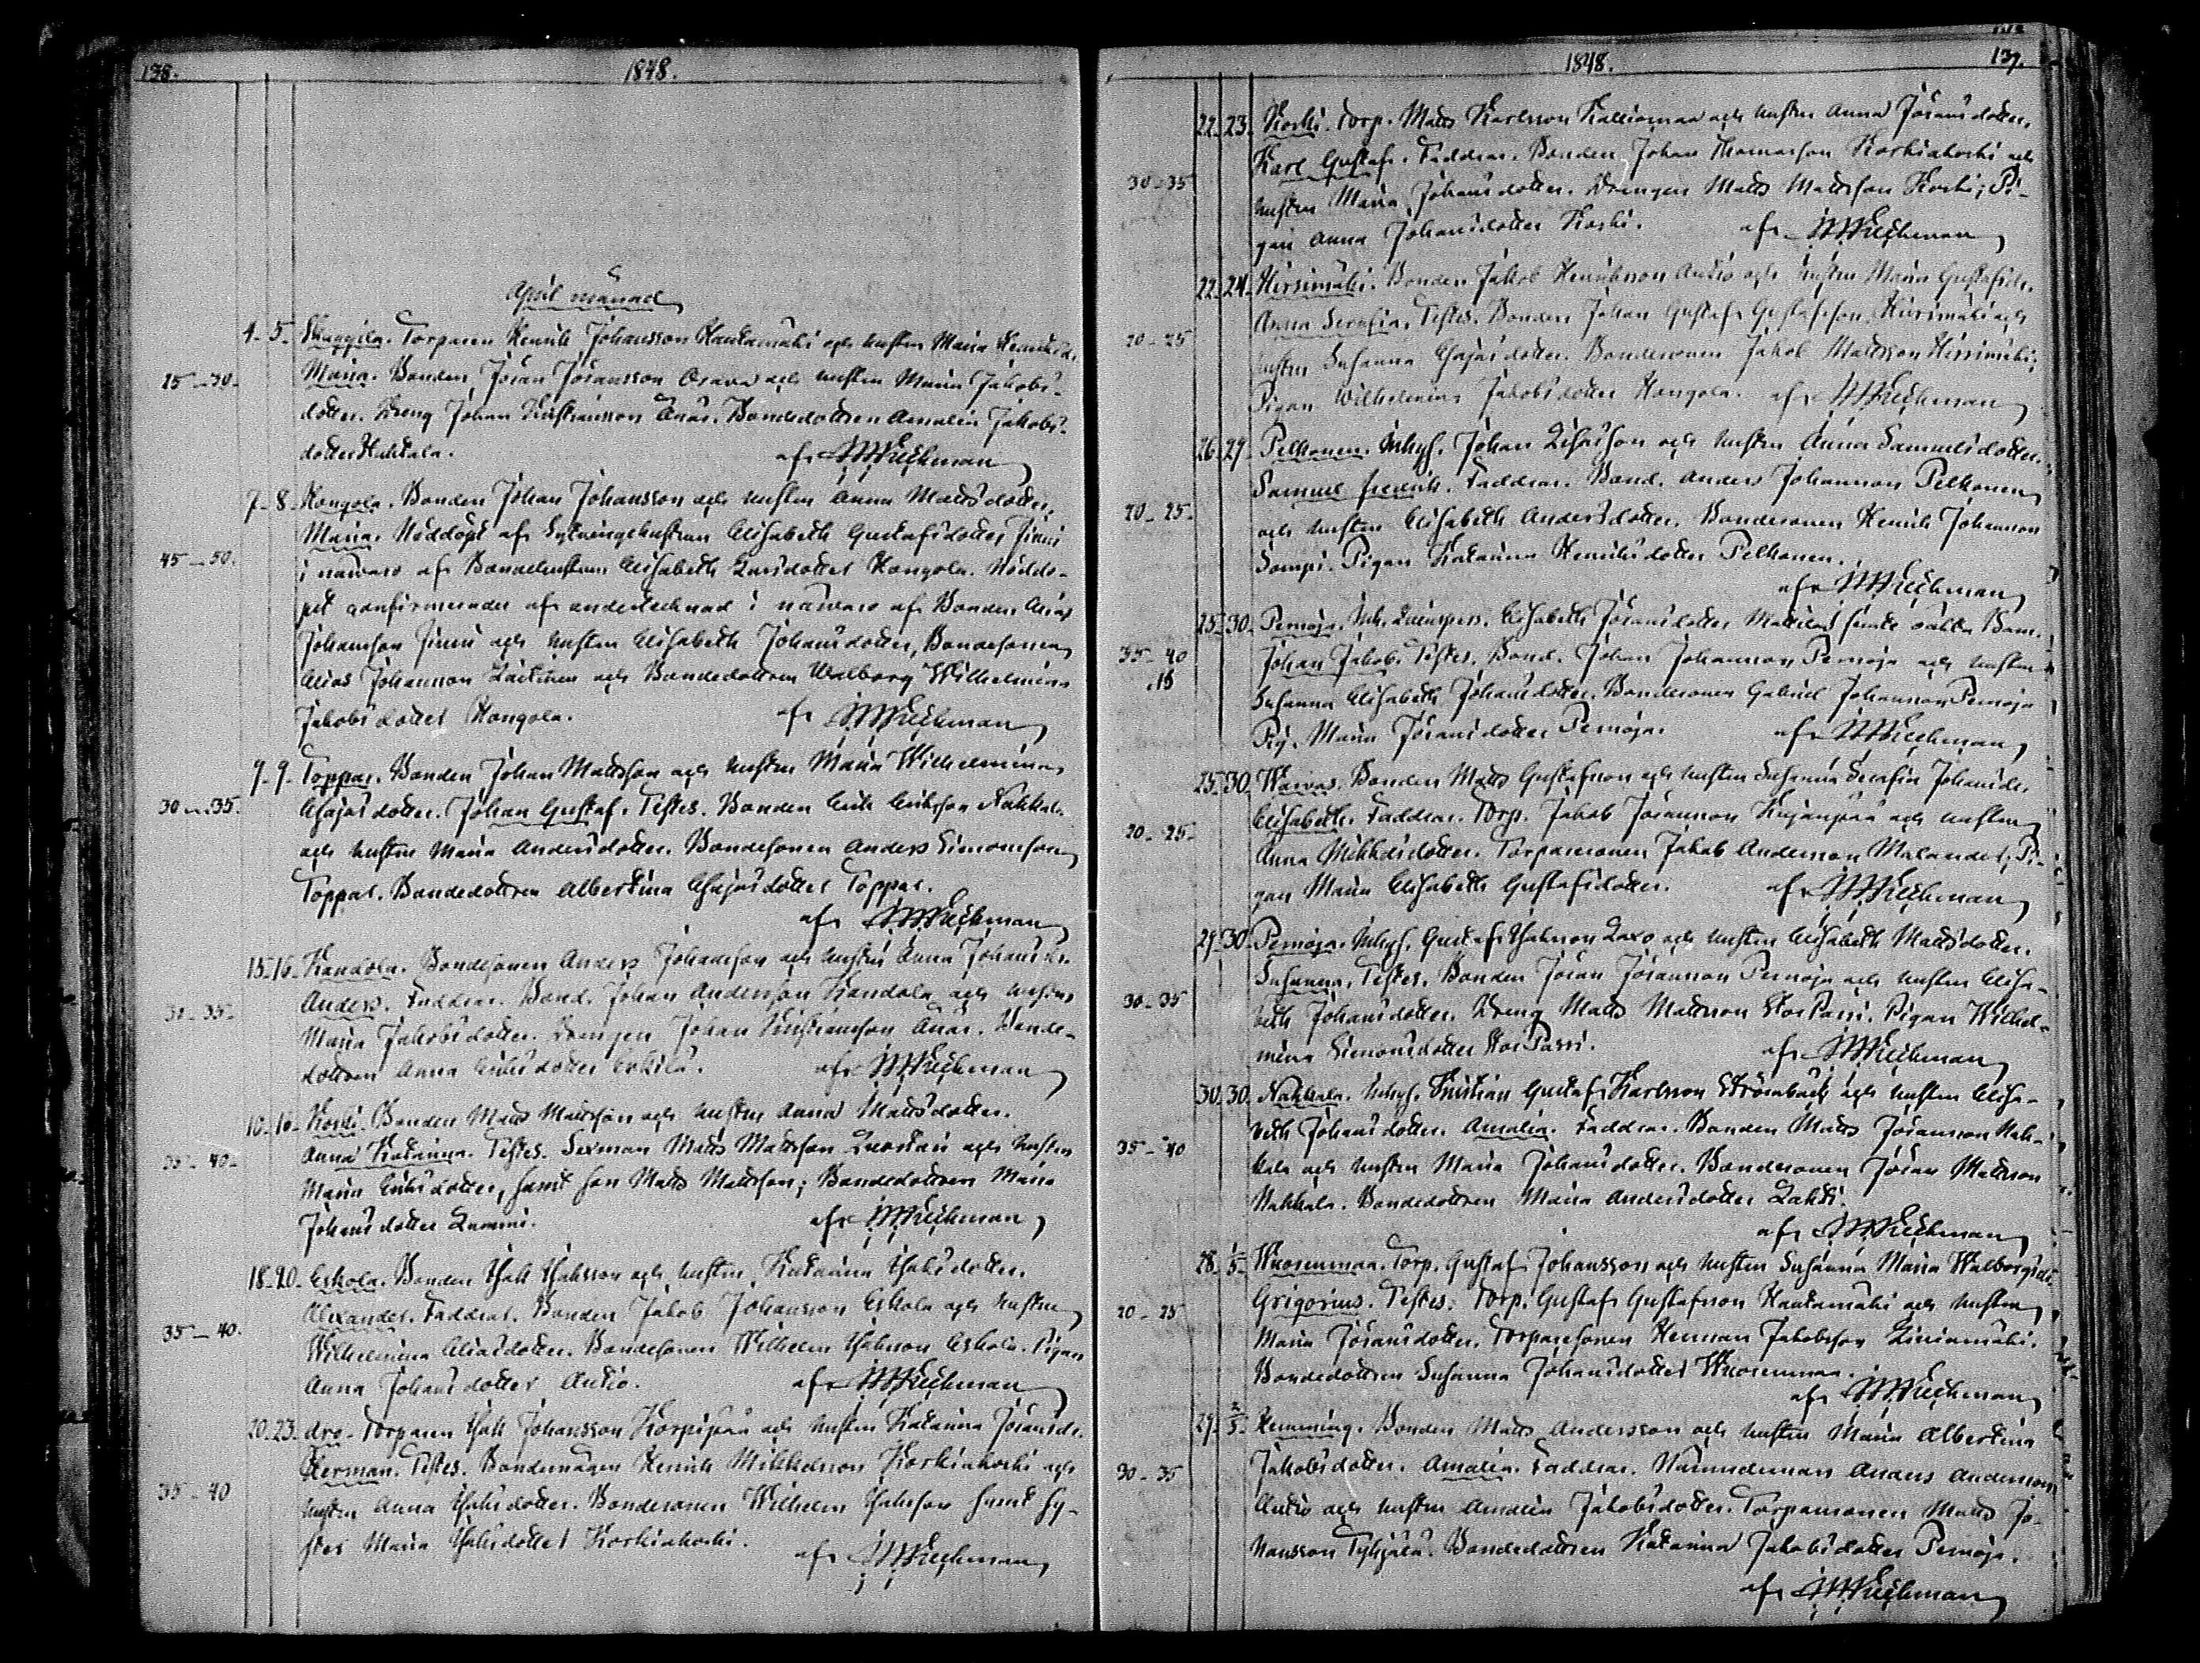 138.
1848.
April månad
4-5- Torparen Henrik Johansson Hautamäki och hustru Maria
25-30-
Maria. Bonden Jöran Jöransson och hustru Maria Jakobs-
dotter. Dreng Johan Kristiansson Anås. Bondedottren Amalia Jakobs-
dotter Hukkala. af
7-8- Kongola. Bonden Johan Johansson och hustru Anna Mattsdotter,
Maria. Nöddöpt af Sytningshustrun Elisabeth Gustafsdotter Jinni
45-50.
i närvaro af Bondehustrun Elisabeth Larsdotter Kongola. Nöddo-
pet confirmerades af undertecknad i närvaro af Bonden Elias
Johansson Jinni och hustru Elisabeth Johansdotter, Bondesonen
Elias Johansson och Bondedottren Walborg Wilhelmina
Jakobsdotter Kongola. af
9-9- Toppar. Bonden Johan Mattsson och hustru Maria Wilhelmina
30-35.
Esajasdotter. Johan Gustaf. Testes. Bonden Erik Eriksson
och hustru Maria Andersdotter. Bondesonen Anders Simonsson
Toppar. Bondedottren Albertina Esajasdotter Toppar.
af
15-16- Kandola. Bondesonen Anders Johansson och hustru Anna Johansdr.
Anders. Faddrar. Bond. Johan Andersson Kandola och hustru
30-35-
Maria Jakobsdotter. Drengen Johan Kristiansson Anås. Bonde-
dottren Anna Eriksdotter Erkilä. af
10-16- Koski. Bonden Matts Mattsson och hustru Anna Mattsdotter.
Anna Katarina. Testes. Sexman Matts Mattsson och hustru
35-40-
Maria Eriksdotter, samt son Matts Mattsson; Bondedottren Maria
Johansdotter. af
18-20- Eskola. Bonden Isak Isaksson och hustru Katarina Isaksdotter.
Alexander. Faddrar. Bonden Jakob Johansson Eskola och hustru
35-40.
Wilhelmina Eliasdotter. Bondesonen Wilhelm Isaksson Eskola. Pigan
Anna Johansdotter Autio. af
20-23- dro- Torparen Isak Johansson Korpipää och hustru Katarina Jöransdr.
Herman. Testes. Bondemågen Henrik Mikkelsson Korkiakoski och
35-40
hustru Anna Isaksdotter. Bondesonen Wilhelm Isaksson samt sy-
ster Maria Isaksdotter Korkiakoski.
af
1848.
137.
22-23- Koski. Torp. Matts Karlsson Kalliomaa och hustru Anna Jöransdotter.
Karl Gustaf. Faddrar. Bonden Johan Thomasson Korkiakoski och
30-35
hustru Maria Johansdotter. Drengen Matts Mattsson Koski; Pi-
gan Anna Johansdotter Koski. af
22-24- Hirsimäki. Bonden Jakob Henriksson Autio och hustru Maria Gustafsdr.
Anna Serafia. Testes. Bonden Johan Gustaf Gustafsson Hirsimäki och
20-25
hustru Susanna Esajasdotter. Bondesonen Jakob Mattsson Hirsimäki;
Pigan Wilhelmina Jakobsdotter Kongola. af
26-29- Pelkonen. Inhys. Johan och hustru Anna Samuelsdotter.
Samuel Fredrik. Faddrar. Bond. Anders Johansson Pelkonen
20-25-
och hustru Elisabeth Andersdotter. Bondesonen Henrik Johansson
Sompi. Pigan Katarina Henriksdotter Pelkonen.
af
25-30- Pernoja. Inh. Elisabeth Jöransdotter oäkta Barn.
35-40
Johan Jakob. Testes. Bond. Johan Johansson Pernoja och hustru
Susanna Elisabeth Johansdotter. Bondesonen Gabriel Johansson Pernoja
Pig. Maria Jöransdotter Pernoja. af
25-30- Warvas. Bonden Matts Gustafsson och hustru Susanna Serafia Johansdr.
Elisabeth. Faddrar. Torp. Jakob Jöransson och hustru
20-25-
Anna Mikkelsdotter. Torparesonen Jakob Andersson Malander; Pi-
gan Maria Elisabeth Gustafsdotter. af
29-30- Pernoja. Inhys. Gustaf Isaksson Laxo och hustru Elisabeth Mattsdotter.
Susanna. Testes. Bonden Jöran Jöransson Pernoja och hustru Elisa-
30-35
beth Johansdotter. Dreng Matts Mattsson StorPassi. Pigan Wilhel-
mina Simonsdotter StorPassi. af
30-30- Nahkala. Inhys. Kristian Gustaf Karlsson Strömbäck och hustru Elisa-
beth Johansdotter. Amalia. Faddrar. Bonden Matts Jöransson Nah-
35-40
kala och hustru Maria Johansdotter. Bondesonen Jöran Mattsson
Nahkala. Bondedottren Maria Andersdotter Lahti.
af
28-1/5- Wuorenmaa. Torp. Gustaf Johansson och hustru Susanna Maria Walborgsdr.
Grigorius. Testes. Torp. Gustaf Gustafsson Hautamäki och hustru
20-25
Maria Jöransdotter. Torparesonen Herman Jakobsson Liniamäki.
Bondedottren Susanna Johansdotter Wuorenmaa.
af
29-2/5- Hemming. Bonden Matts Andersson och hustru Maria Albertina
Jakobsdotter. Amalia. Faddrar. Nämndeman Anders Andersson
30-35
Autio och hustru Amalia Jakobsdotter. Torparesonen Matts Jo-
hansson Tyhjälä. Bondedottren Katarina Jakobsdotter Pernoja.
af